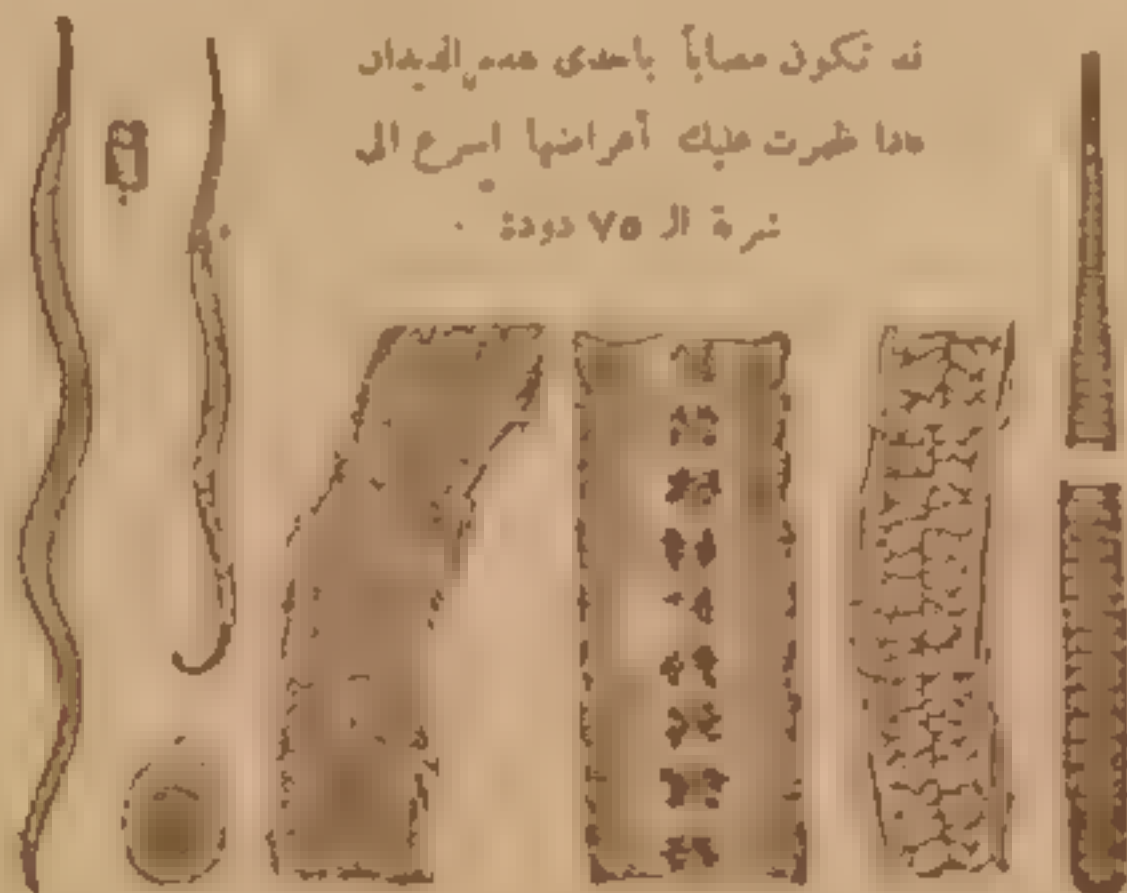 قد تكون مصاباً باحدى هذه الديدان
فاذا ظهرت عليك أعراضها اسرع الى
شربة الـ ٧٥ دودة .